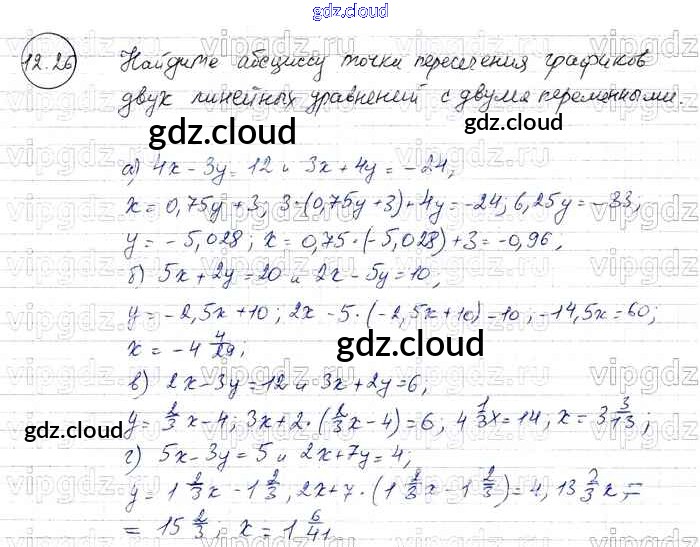 gdz.cloud
12.26 Найдите абсциссу точки пересечения графиков
двух линейных уравнений с двумя переменными.
gdz.cloud gdz.cloud
а) 4x - 3y = 12 и 3x + 4y = -24;
x = 0,75y + 3; 3·(0,75y + 3) + 4y = -24; 6,25y = -33;
y = -5,028; x = 0,75·(-5,028) + 3 = -0,96;
б) 5x + 2y = 20 и 2x - 5y = 10;
y = -2,5x + 10; 2x - 5·(-2,5x + 10) - 10; -14,5x = 60;
x = -4 4/29;
gdz.cloud
в) 2x - 3y = 12 и 3x + 2y = 6;
y = 2/3 x - 4; 3x + 2·(2/3 x - 4) = 6; 4 1/3 x = 14; x = 3 3/13;
gdz.cloud gdz.cloud
г) 5x - 3y = 5 и 2x + 7y = 4;
y = 1 2/3 x - 1 2/3; 2x + 7·(1 2/3 x - 1 2/3) = 4; 13 2/3 x =
= 15 2/3; x = 1 6/41.